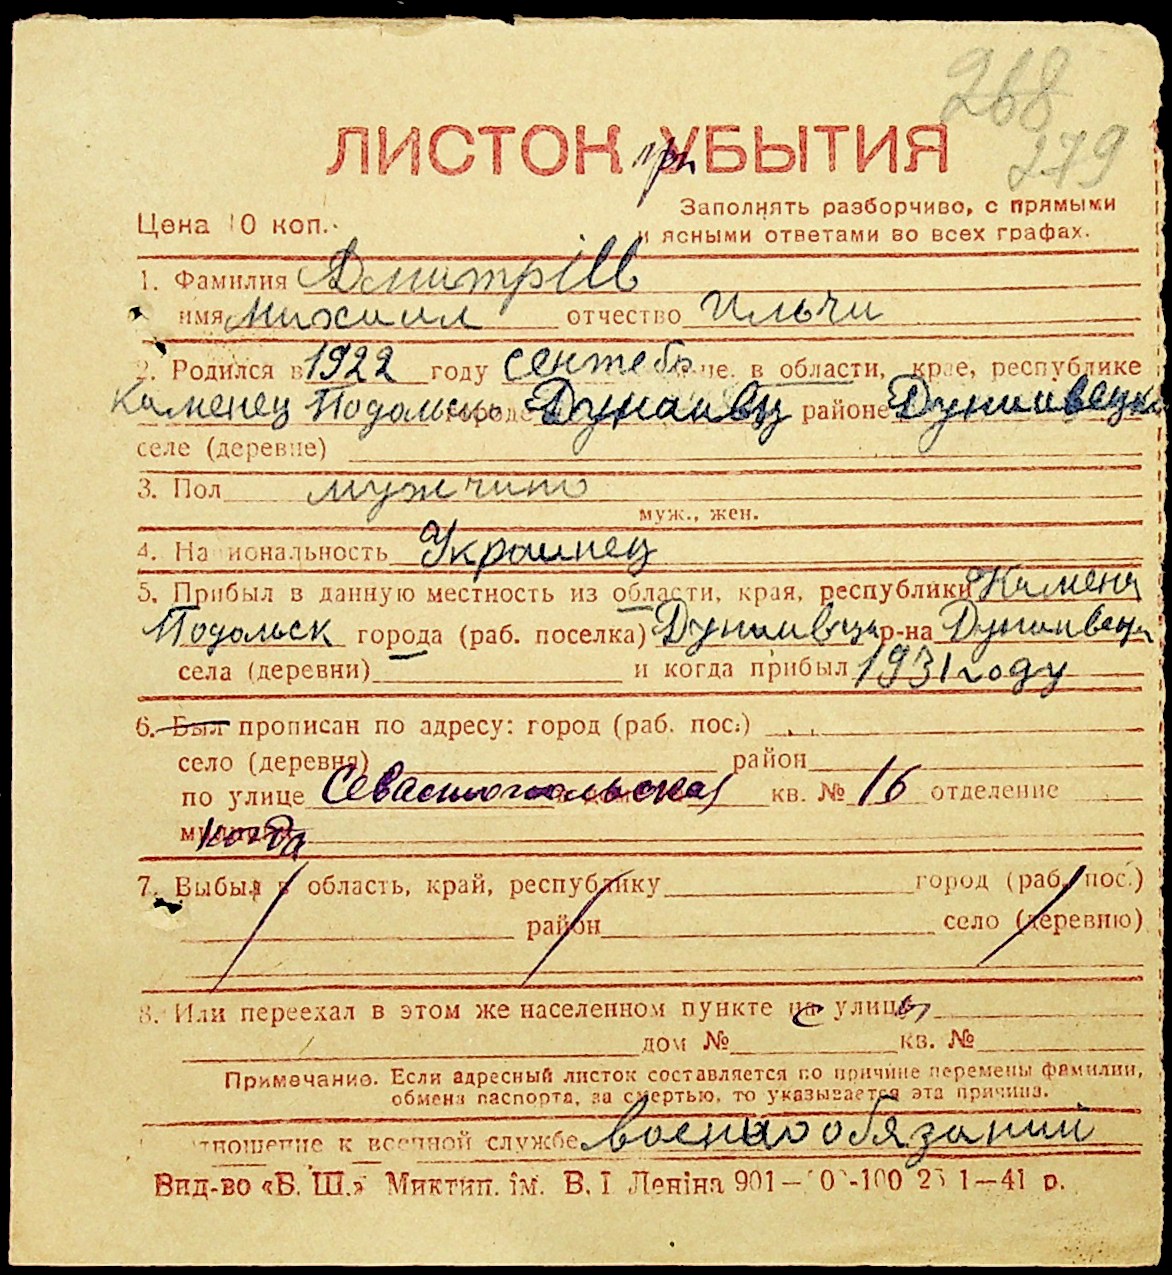 268
279
ЛИСТОК при УБЫТИЯ
Цена 10 коп.
Заполнять разборчиво, с прямыми
и ясными ответами во всех графах.
1. Фамилия Дмитріів
имя Михаил отчество Ильич
2. Родился в 1922 году сентебр не. в области, крае, республике
Каменец Подольск городе Дунаивц районе Дунаивецк
селе (деревне)
3. Пол мужчино
муж., жен.
4. Национальность Украинец
5. Прибыл в данную местность из области, края, республики Камен
Подольск города (раб. поселка) Дунаивци р-на Дунаивец
села (деревни) и когда прибыл 1931 году
6. Был прописан по адресу: город (раб. пос.)
село (деревня) район
по улице Севастопольская кв. № 16 отделение
когда
7. Выбыл в область, край, республику город (раб. пос.)
район село (деревню)
8. Или переехал в этом же населенном пункте с улицы
дом № кв. №
Примечание. Если адресный листок составляется по причине перемены фамилии,
обмена паспорта, за смертью, то указывается эта причина.
тношение к военной службе военнообязаний
Вид-во «Б. Ш.» Миктип. ім. В. І Леніна 901— -100 1—41 р.